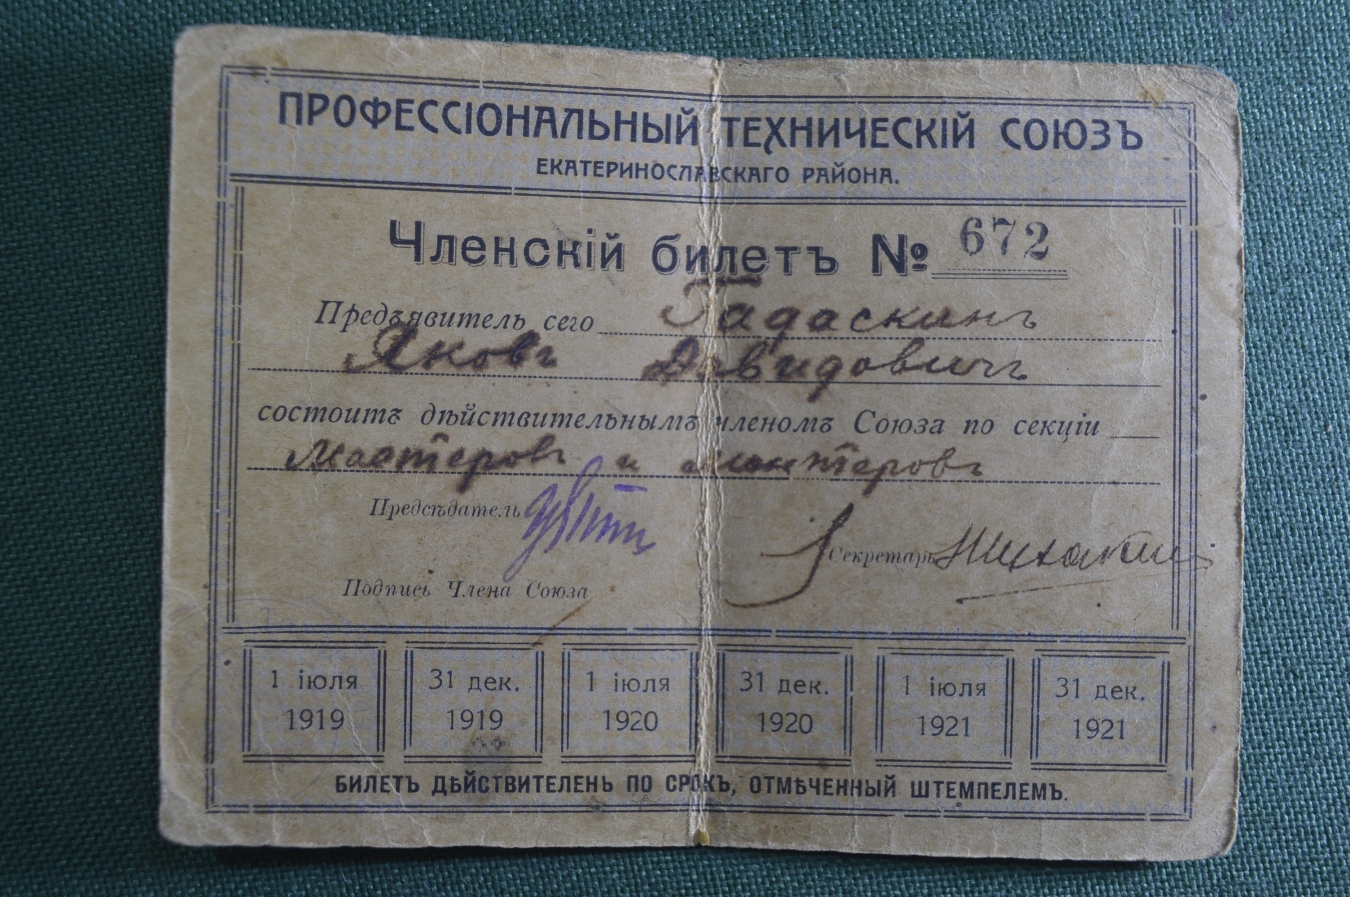 ПРОФЕССІОНАЛЬНЫЙ ТЕХНИЧЕСКІЙ СОЮЗЪ
ЕКАТЕРИНОСЛАВСКАГО РАЙОНА.
Членскій билетъ № 672
Предъявитель сего Гадаскинъ
Яковъ Давидовичъ
состоитъ дѣйствительнымъ членомъ Союза по секціи
Мастеровъ и монтеровъ
Предсѣдатель
Секретарь
Подпись Члена Союза
1 іюля 31 дек. 1 іюля 31 дек. 1 іюля 31 дек.
1919 1919 1920 1920 1921 1921
БИЛЕТЪ ДѢЙСТВИТЕЛЕНЬ ПО СРОКЪ, ОТМѢЧЕННЫЙ ШТЕМПЕЛЕМЪ.